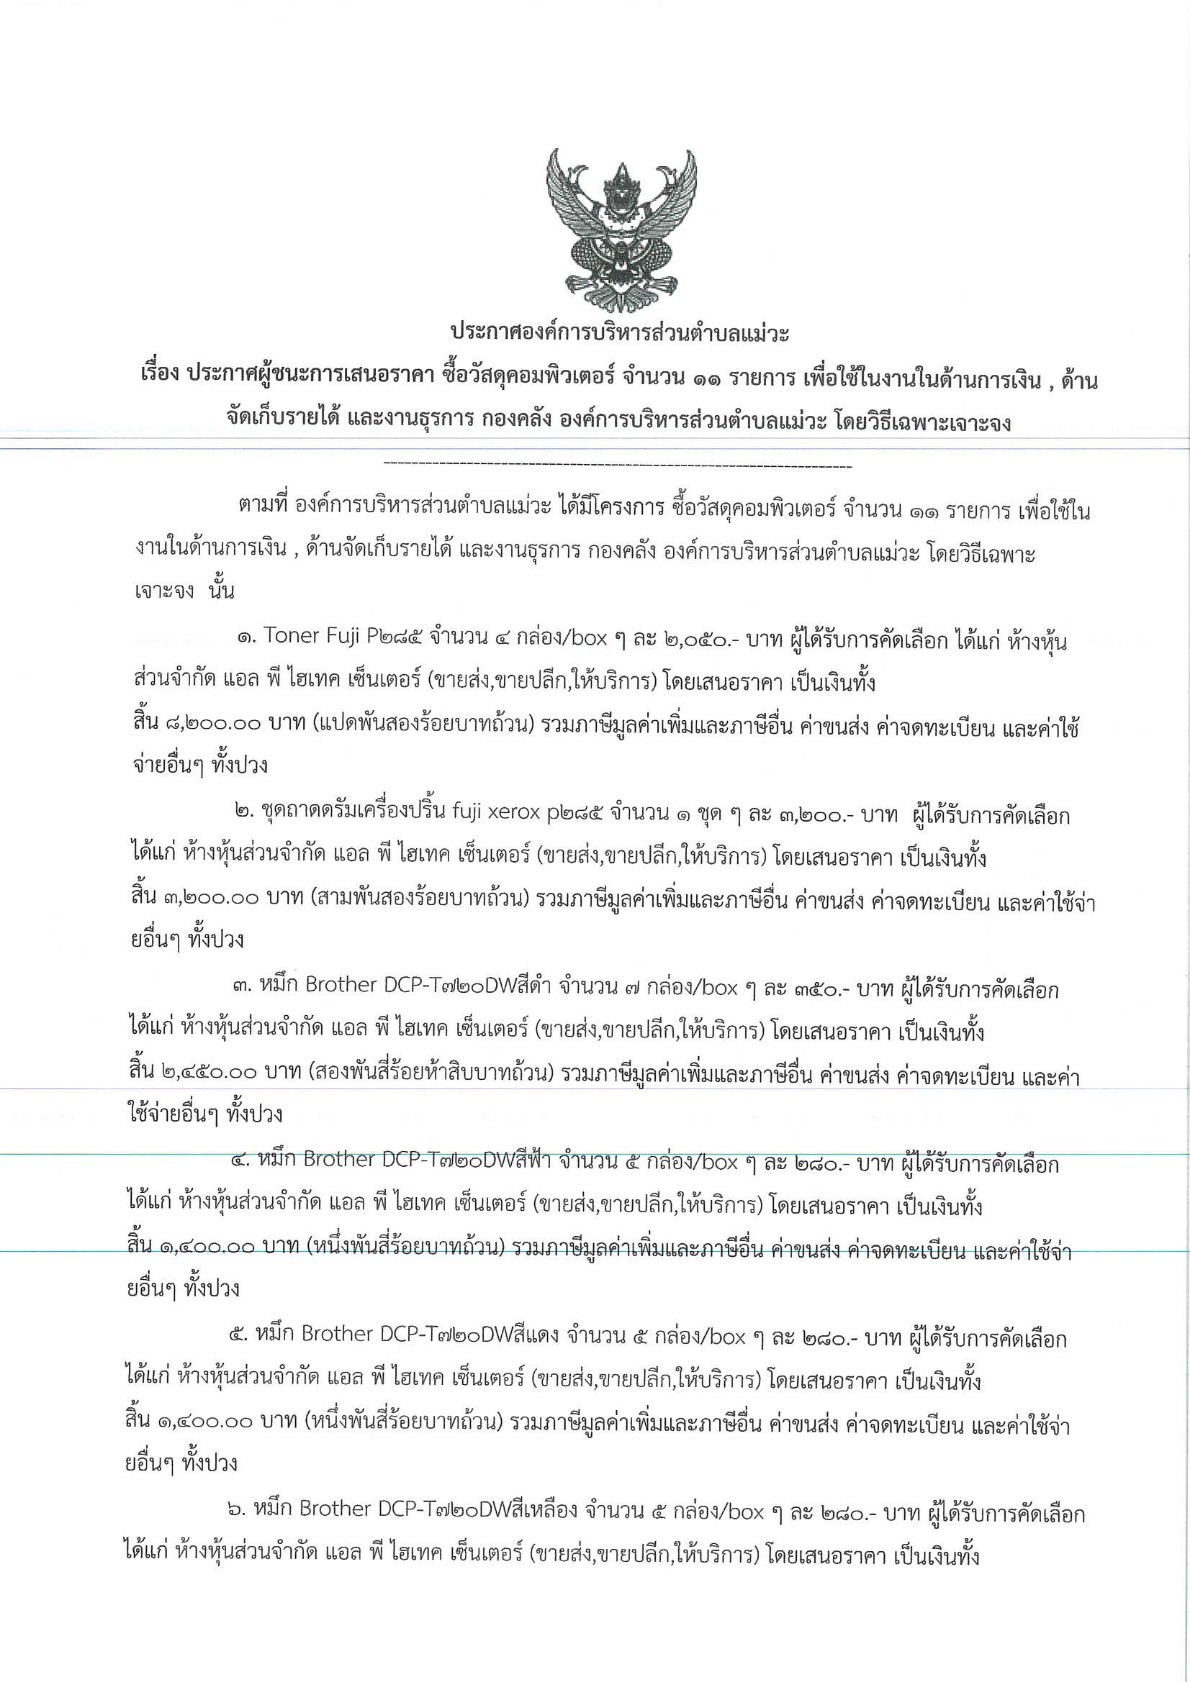 ประกาศองค์การบริหารส่วนตำบลแม่วะ
เรื่อง ประกาศผู้ชนะการเสนอราคา ซื้อวัสดุคอมพิวเตอร์ จำนวน ๑๑ รายการ เพื่อใช้ในงานในด้านการเงิน , ด้าน
จัดเก็บรายได้ และงานธุรการ กองคลัง องค์การบริหารส่วนตำบลแม่วะ โดยวิธีเฉพาะเจาะจง
--------------------------------------------------------------------
ตามที่ องค์การบริหารส่วนตำบลแม่วะ ได้มีโครงการ ซื้อวัสดุคอมพิวเตอร์ จำนวน ๑๑ รายการ เพื่อใช้ใน
งานในด้านการเงิน , ด้านจัดเก็บรายได้ และงานธุรการ กองคลัง องค์การบริหารส่วนตำบลแม่วะ โดยวิธีเฉพาะ
เจาะจง  นั้น
๑. Toner Fuji P๒๘๕ จำนวน ๔ กล่อง/box ๆ ละ ๒,๐๕๐.- บาท ผู้ได้รับการคัดเลือก ได้แก่ ห้างหุ้น
ส่วนจำกัด แอล พี ไฮเทค เซ็นเตอร์ (ขายส่ง,ขายปลีก,ให้บริการ) โดยเสนอราคา เป็นเงินทั้ง
สิ้น ๘,๒๐๐.๐๐ บาท (แปดพันสองร้อยบาทถ้วน) รวมภาษีมูลค่าเพิ่มและภาษีอื่น ค่าขนส่ง ค่าจดทะเบียน และค่าใช้
จ่ายอื่นๆ ทั้งปวง
๒. ชุดถาดดรัมเครื่องปริ้น fuji xerox p๒๘๕ จำนวน ๑ ชุด ๆ ละ ๓,๒๐๐.- บาท  ผู้ได้รับการคัดเลือก
ได้แก่ ห้างหุ้นส่วนจำกัด แอล พี ไฮเทค เซ็นเตอร์ (ขายส่ง,ขายปลีก,ให้บริการ) โดยเสนอราคา เป็นเงินทั้ง
สิ้น ๓,๒๐๐.๐๐ บาท (สามพันสองร้อยบาทถ้วน) รวมภาษีมูลค่าเพิ่มและภาษีอื่น ค่าขนส่ง ค่าจดทะเบียน และค่าใช้จ่า
ยอื่นๆ ทั้งปวง
๓. หมึก Brother DCP-T๗๒๐DWสีดำ จำนวน ๗ กล่อง/box ๆ ละ ๓๕๐.- บาท ผู้ได้รับการคัดเลือก
ได้แก่ ห้างหุ้นส่วนจำกัด แอล พี ไฮเทค เซ็นเตอร์ (ขายส่ง,ขายปลีก,ให้บริการ) โดยเสนอราคา เป็นเงินทั้ง
สิ้น ๒,๔๕๐.๐๐ บาท (สองพันสี่ร้อยห้าสิบบาทถ้วน) รวมภาษีมูลค่าเพิ่มและภาษีอื่น ค่าขนส่ง ค่าจดทะเบียน และค่า
ใช้จ่ายอื่นๆ ทั้งปวง
๔. หมึก Brother DCP-T๗๒๐DWสีฟ้า จำนวน ๕ กล่อง/box ๆ ละ ๒๘๐.- บาท ผู้ได้รับการคัดเลือก
ได้แก่ ห้างหุ้นส่วนจำกัด แอล พี ไฮเทค เซ็นเตอร์ (ขายส่ง,ขายปลีก,ให้บริการ) โดยเสนอราคา เป็นเงินทั้ง
สิ้น ๑,๔๐๐.๐๐ บาท (หนึ่งพันสี่ร้อยบาทถ้วน) รวมภาษีมูลค่าเพิ่มและภาษีอื่น ค่าขนส่ง ค่าจดทะเบียน และค่าใช้จ่า
ยอื่นๆ ทั้งปวง
๕. หมึก Brother DCP-T๗๒๐DWสีแดง จำนวน ๕ กล่อง/box ๆ ละ ๒๘๐.- บาท ผู้ได้รับการคัดเลือก
ได้แก่ ห้างหุ้นส่วนจำกัด แอล พี ไฮเทค เซ็นเตอร์ (ขายส่ง,ขายปลีก,ให้บริการ) โดยเสนอราคา เป็นเงินทั้ง
สิ้น ๑,๔๐๐.๐๐ บาท (หนึ่งพันสี่ร้อยบาทถ้วน) รวมภาษีมูลค่าเพิ่มและภาษีอื่น ค่าขนส่ง ค่าจดทะเบียน และค่าใช้จ่า
ยอื่นๆ ทั้งปวง
๖. หมึก Brother DCP-T๗๒๐DWสีเหลือง จำนวน ๕ กล่อง/box ๆ ละ ๒๘๐.- บาท ผู้ได้รับการคัดเลือก
ได้แก่ ห้างหุ้นส่วนจำกัด แอล พี ไฮเทค เซ็นเตอร์ (ขายส่ง,ขายปลีก,ให้บริการ) โดยเสนอราคา เป็นเงินทั้ง